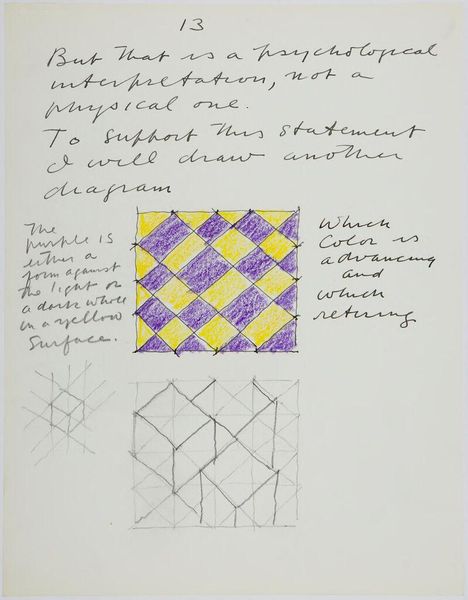 13
But that is a psychological
interpretation, not a
physical one.
To support this statement
I will draw another
diagram
The
purple is
either a
form against
the light or
a dark whole
in a yellow
surface.
Which
Color is
advancing
and
which
retiring